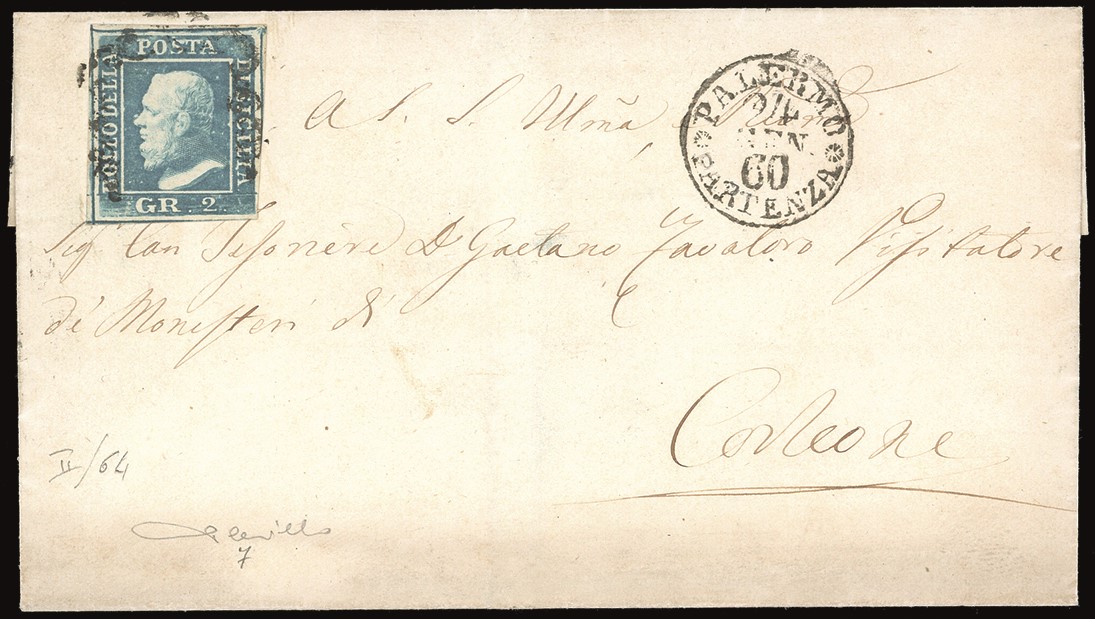 POSTA
BOLLO DELLA
DI SICILIA
GR. 2.
PALERMO
GEN
60
PARTENZA
A S. S. Illma
Sig Can Tesoriere D. Gaetano Zavaloro Visitatore
de' Monisteri di
Corleone
II/64
7